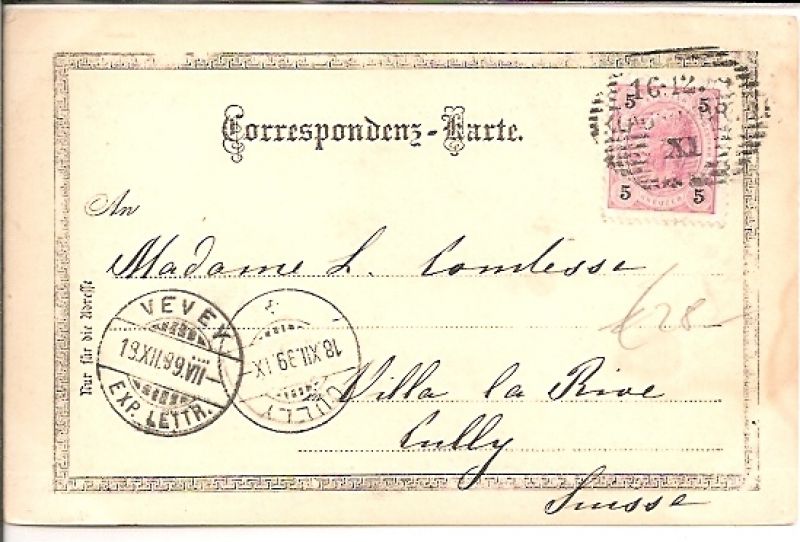 Correspondenz-Karte.
16.12.
XI
5 5
5 5
An
Madame L. Comtesse
Nur für die Adresse
VEVEY
19.XII.99.VII
EXP. LETTR.
18.XII.99.IX
CULLY
in Villa la Rive
Cully
Suisse